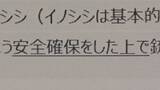 シシ（イノシシは基本的
う安全確保をした上で銃